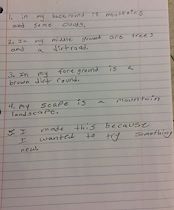 1. in my background is mountains
and some clouds.
2. In my middle ground are trees
and a dirtroad.
3. In my fore ground is a
brown dirt round.
4. my scape is a mountain
landscape.
5. I made this because
I wanted to try something
new.